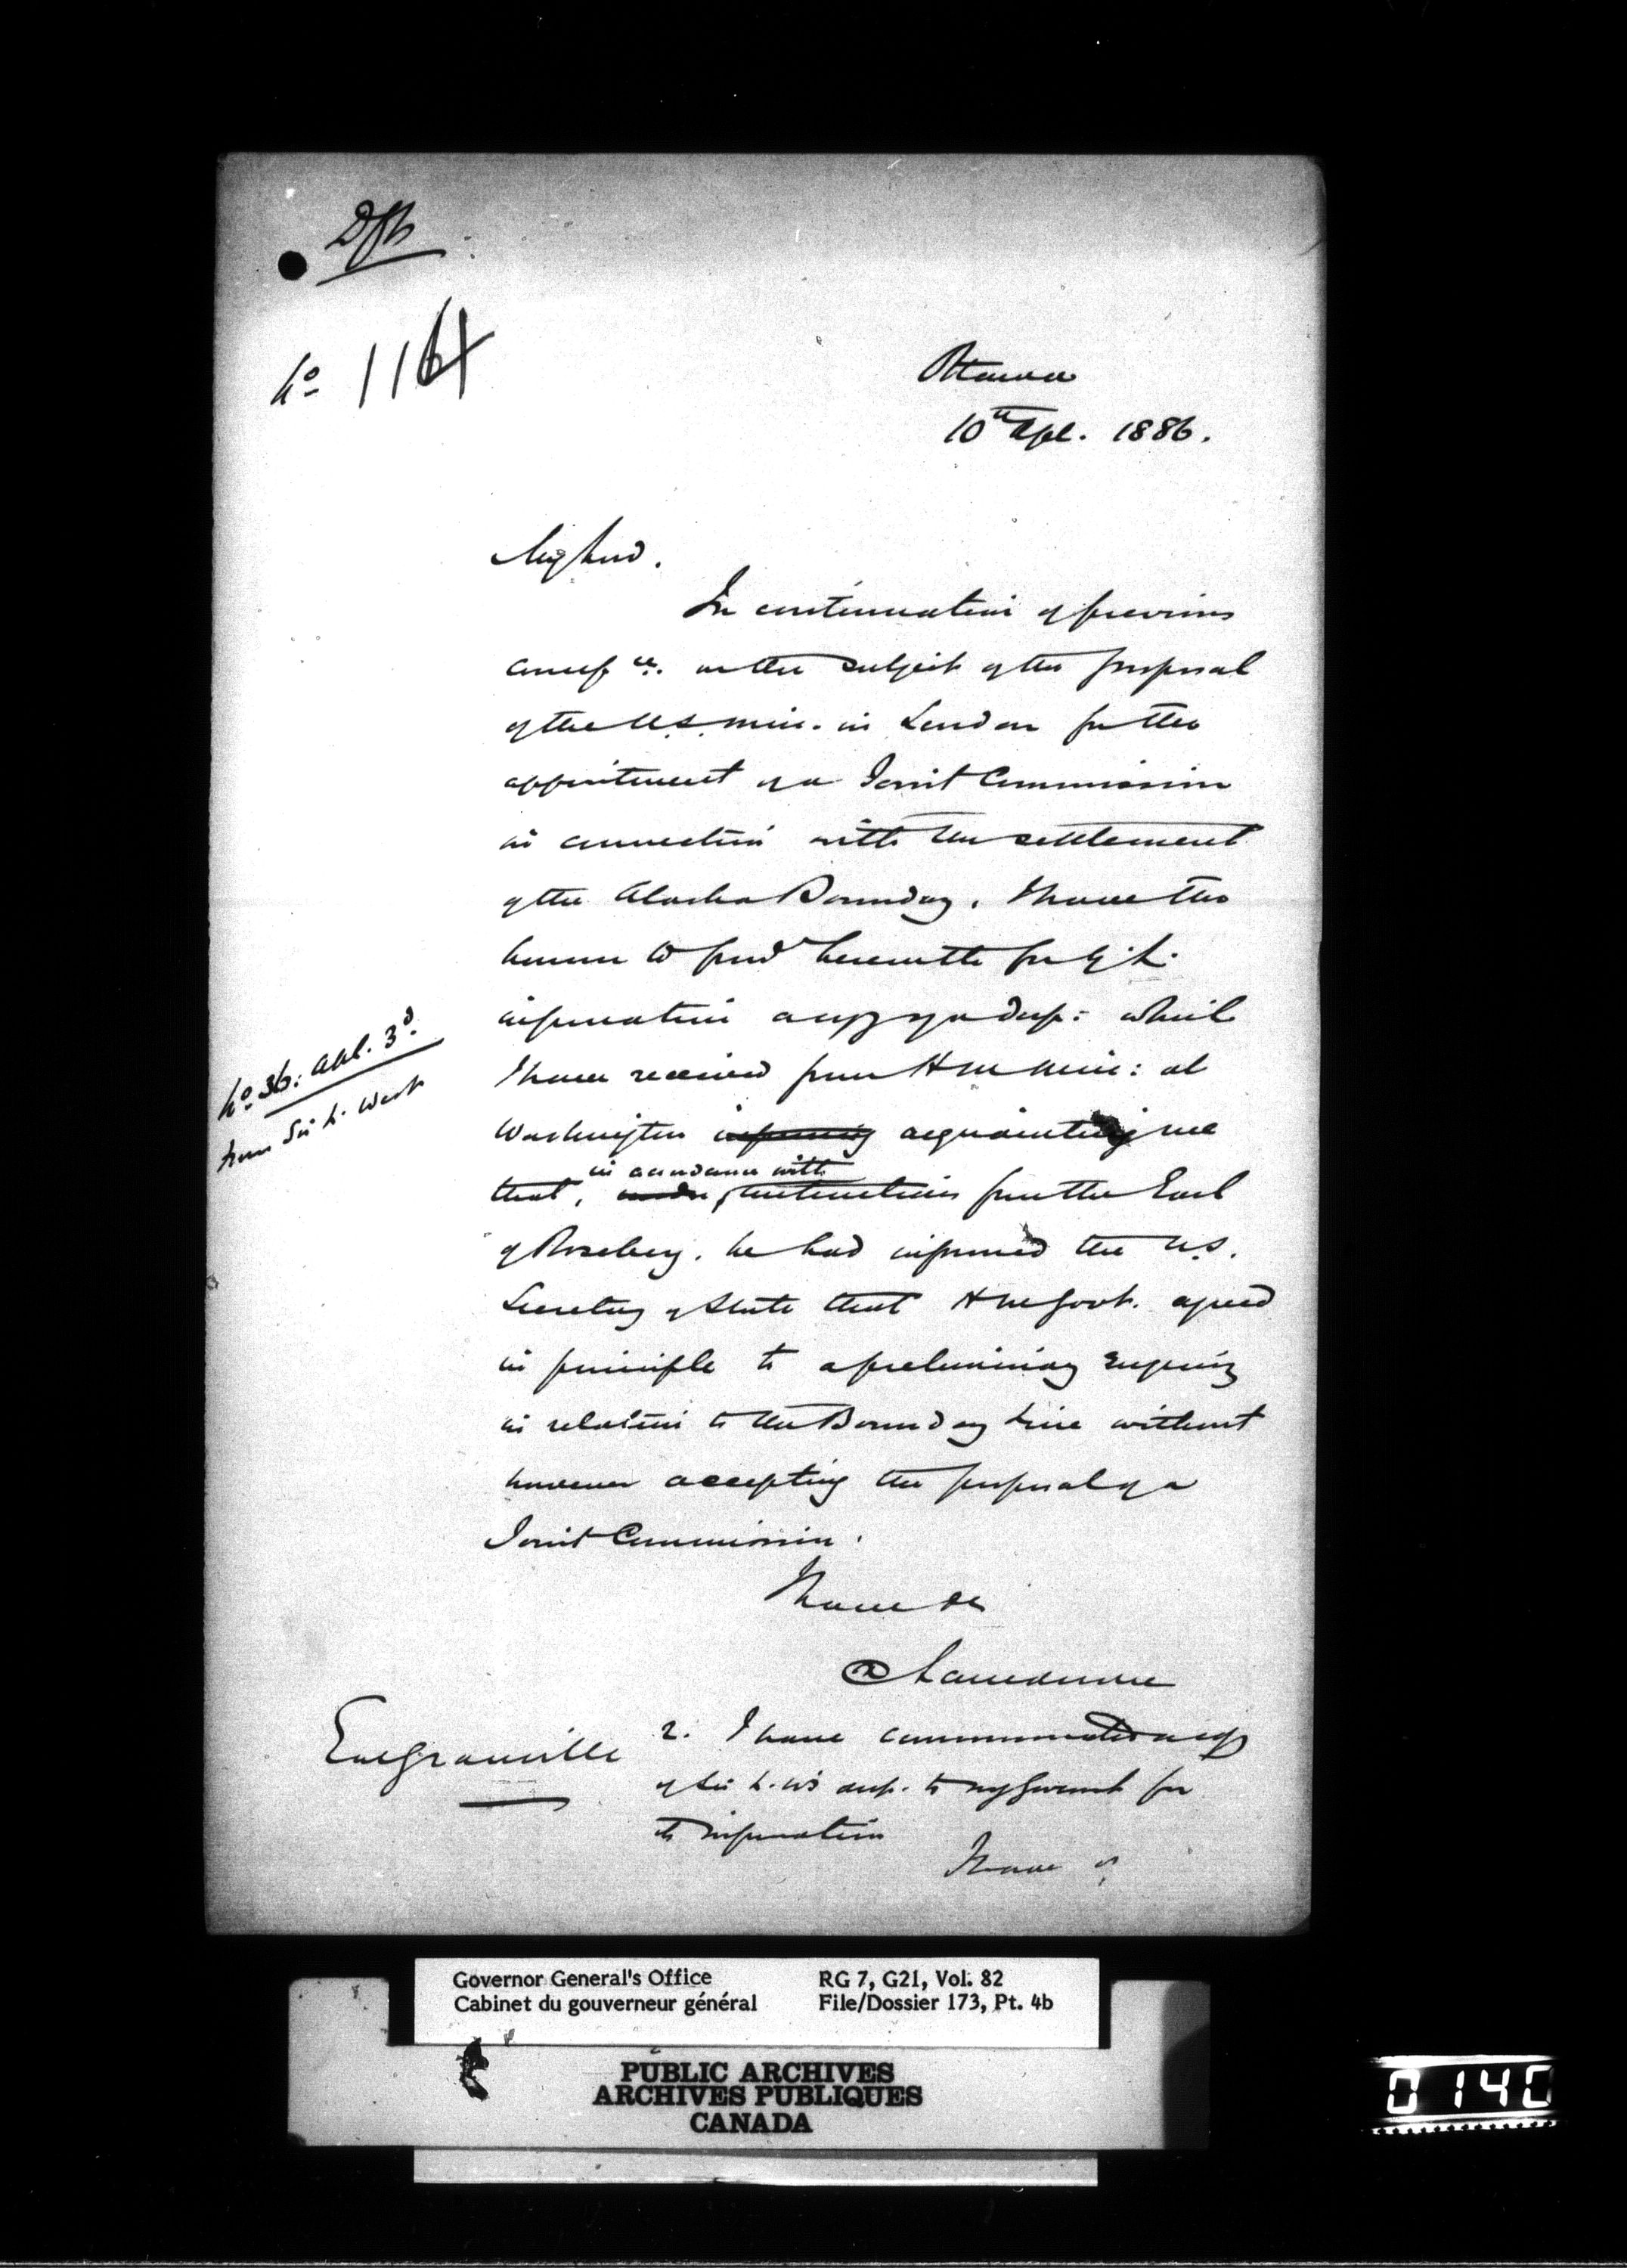 Dft
No 116
Ottawa
10th Apl. 1886.
My Lord.
In continuation of previous
corresp ce. on the subject of the proposal
of the U.S. Min. in London for the
appointment of a Joint Commission
in connection with the settlement
of the Alaska Boundary, I have the
honour to forwd herewith for Y.L.
information a copy of a desp: which
I have received from H M Minr: at
Washington informing acquainting me
that, in accordance with
under instructions from the Earl
of Rosebery, he had informed the U.S.
Secretary of State that H M Govt. agreed
in principle to a preliminary enquiry
in relation to the Boundary Line without
however accepting the proposal of a
Joint Commission.
No 36: Apl. 3d.
from Sir L. West
I have &c
Lansdowne
Earl Granville
2. I have communicated a copy
of Sir L. W's desp. to my Govermt for
its information
I have &c
Governor General's Office
Cabinet du gouverneur général
RG 7, G21, Vol. 82
File/Dossier 173, Pt. 4b
PUBLIC ARCHIVES
ARCHIVES PUBLIQUES
CANADA
0140